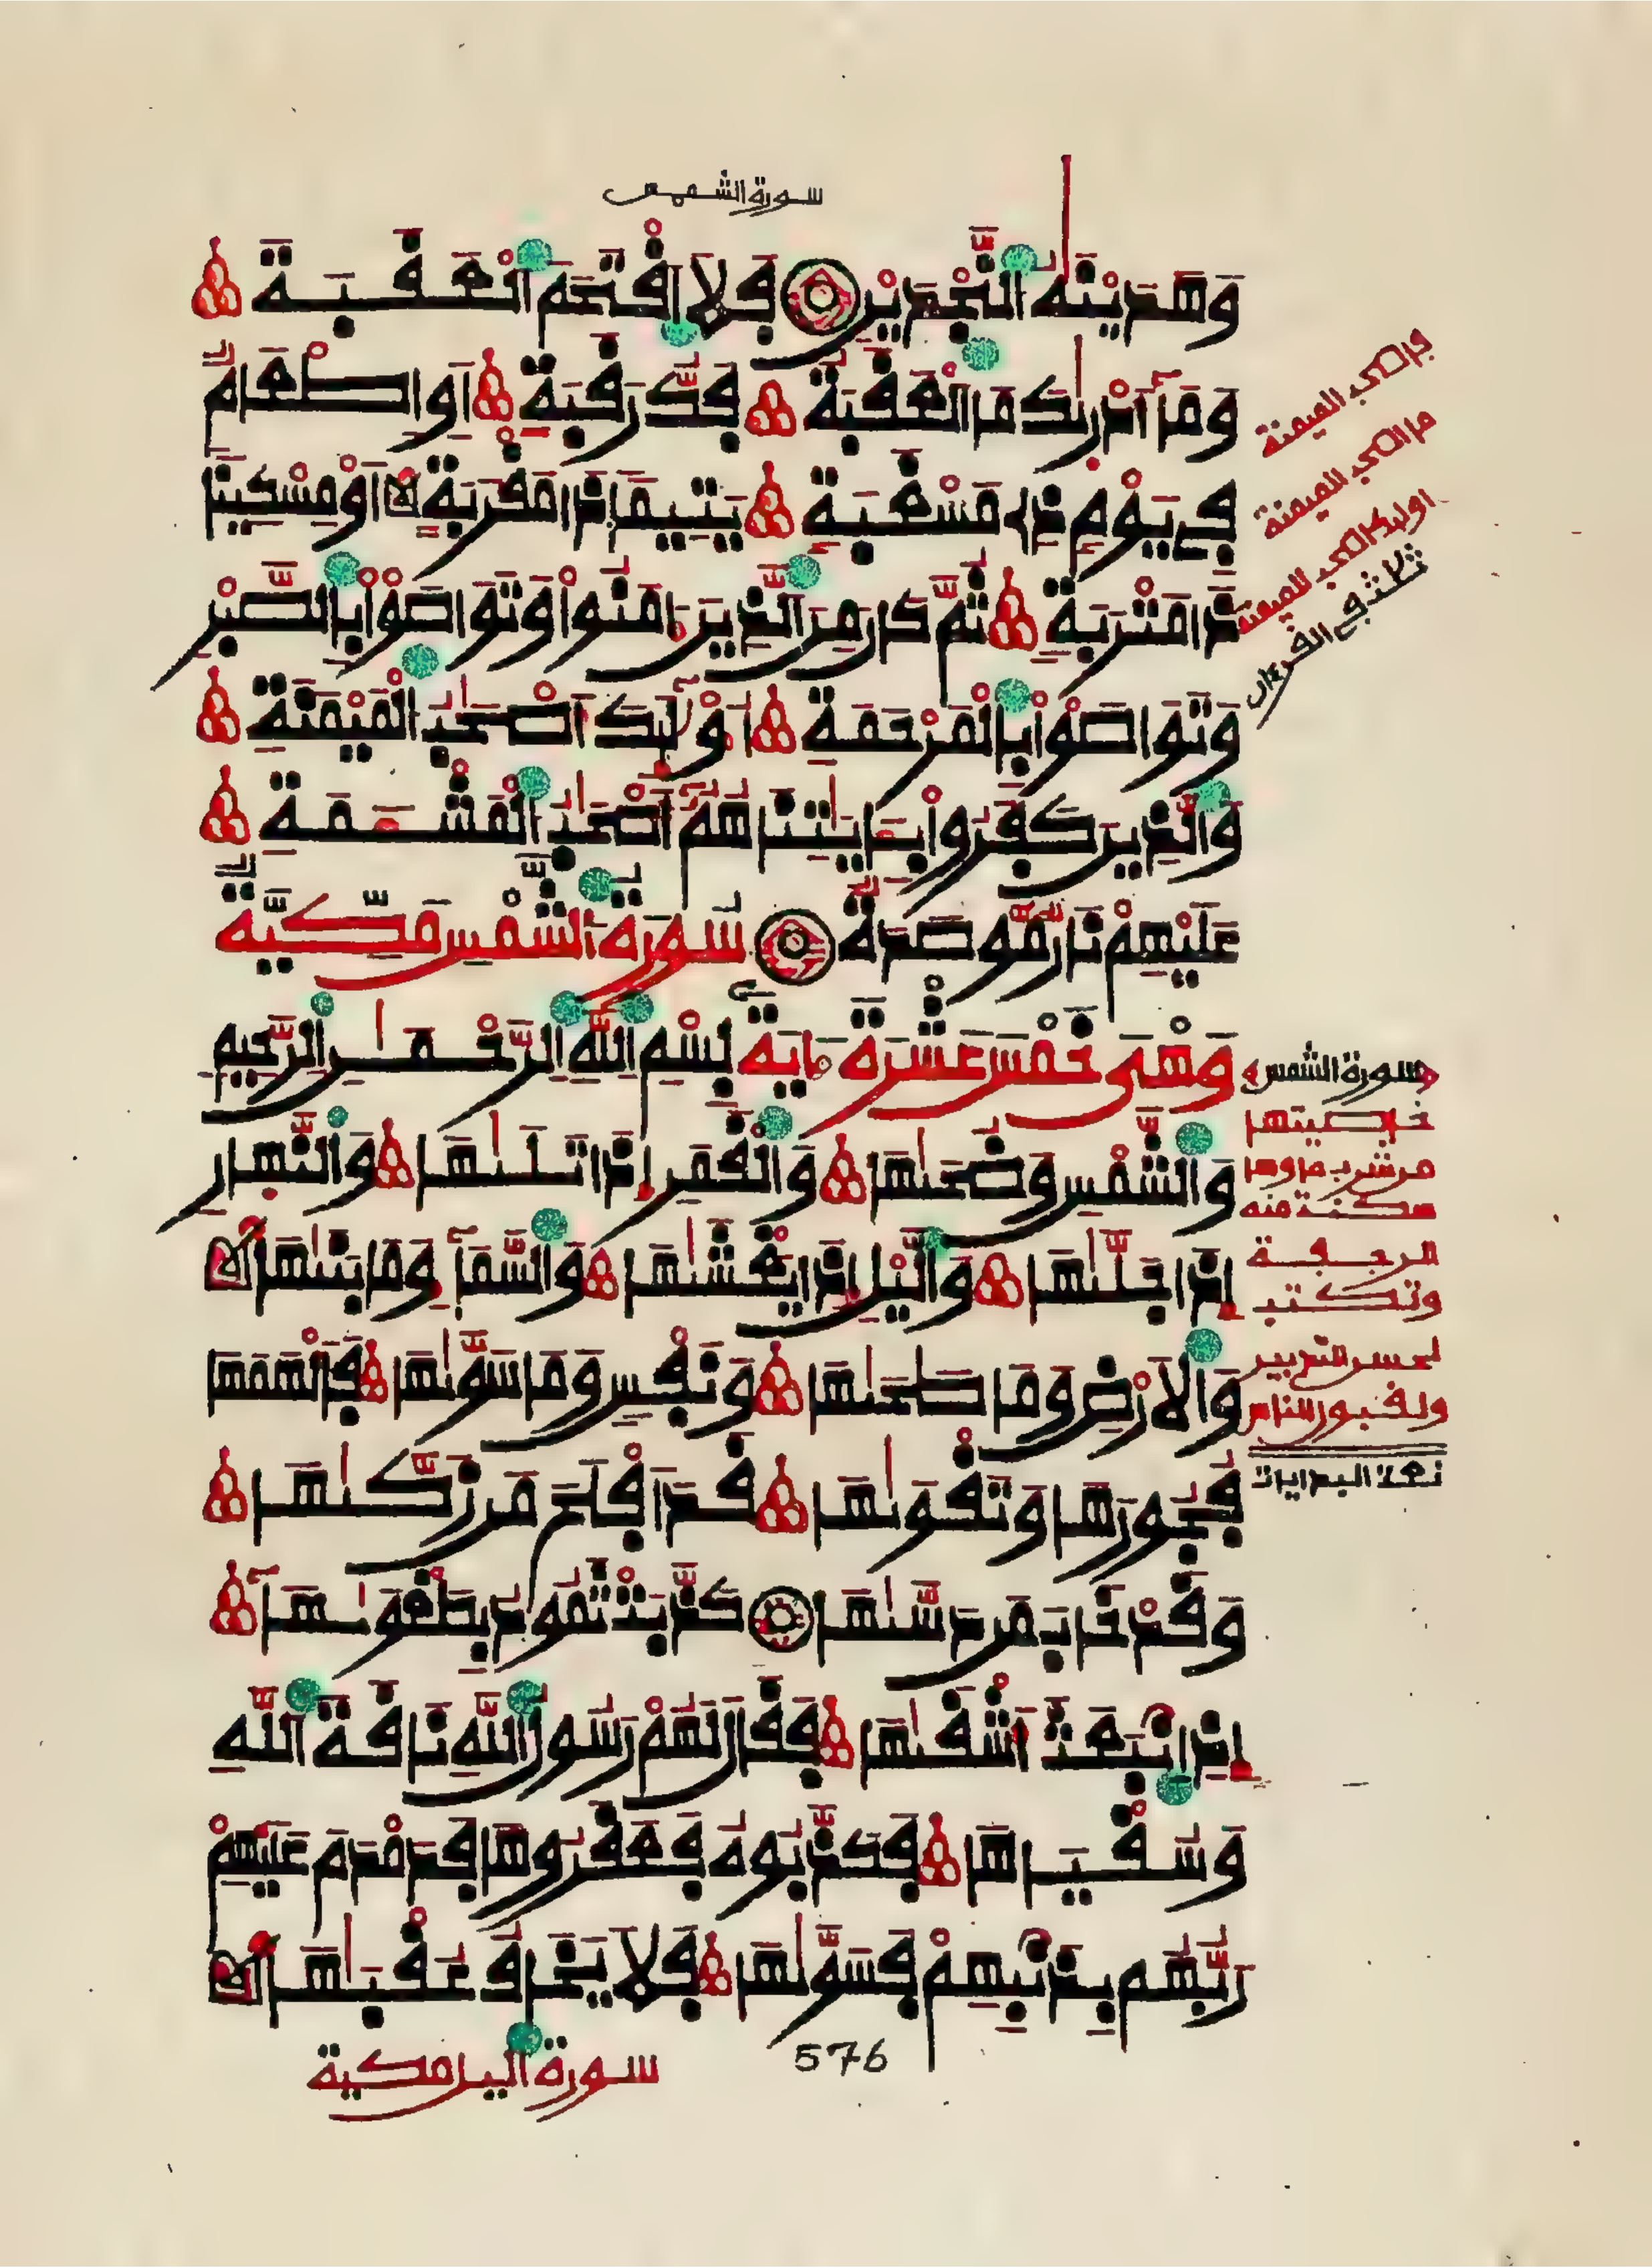 سورة الشمس
وَهَدَيْنَٰهُ النَّجْدَيْنِ فَلَا اقْتَحَمَ الْعَقَبَةَ
وَمَآ أَدْرَىٰكَ مَا الْعَقَبَةُ فَكُّ رَقَبَةٍ أَوِ اطْعَٰمٌ
فِي يَوْمٍ ذِي مَسْغَبَةٍ يَتِيمًا ذَا مَقْرَبَةٍ أَوْ مِسْكِينًا
ذَا مَتْرَبَةٍ ثُمَّ كَانَ مِنَ الَّذِينَ ءَامَنُوا وَتَوَاصَوْا بِالصَّبْرِ
وَتَوَاصَوْا بِالْمَرْحَمَةِ أُوْلَٰٓئِكَ أَصْحَٰبُ الْمَيْمَنَةِ
وَالَّذِينَ كَفَرُوا بِـَٔايَٰتِنَا هُمُۥٓ أَصْحَٰبُ الْمَشْـَٔمَةِ
عَلَيْهِمْ نَارٌ مُّوصَدَةٌ سُورَةُ الشَّمْسِ مَكِّيَّةٌ
وَهْيَ خَمْسَ عَشْرَةَ ءَايَةً بِسْمِ اللَّهِ الرَّحْمَٰنِ الرَّحِيمِ
وَالشَّمْسِ وَضُحَىٰهَا وَالْقَمَرِ إِذَا تَلَىٰهَا وَالنَّهَارِ
إِذَا جَلَّىٰهَا وَالَّيْلِ إِذَا يَغْشَىٰهَا وَالسَّمَآءِ وَمَا بَنَىٰهَا
وَالْأَرْضِ وَمَا طَحَىٰهَا وَنَفْسٍ وَمَا سَوَّىٰهَا فَأَلْهَمَهَا
فُجُورَهَا وَتَقْوَىٰهَا قَدْ أَفْلَحَ مَن زَكَّىٰهَا
وَقَدْ خَابَ مَن دَسَّىٰهَا كَذَّبَتْ ثَمُودُ بِطَغْوَىٰهَآ
إِذِ انۢبَعَثَ أَشْقَىٰهَا فَقَالَ لَهُمْ رَسُولُ اللَّهِ نَاقَةَ اللَّهِ
وَسُقْيَٰهَا فَكَذَّبُوهُ فَعَقَرُوهَا فَدَمْدَمَ عَلَيْهِمْ
رَبُّهُم بِذَنۢبِهِمْ فَسَوَّىٰهَا فَلَا يَخَافُ عُقْبَٰهَا
سورة اليل مكية
576
الميمنة
الميمنة
الميمنة
ثلث في القرءان
سورة الشمس
خاصيتها
من شرب ماءها
سكنت منه
الرجفة
وتكتب